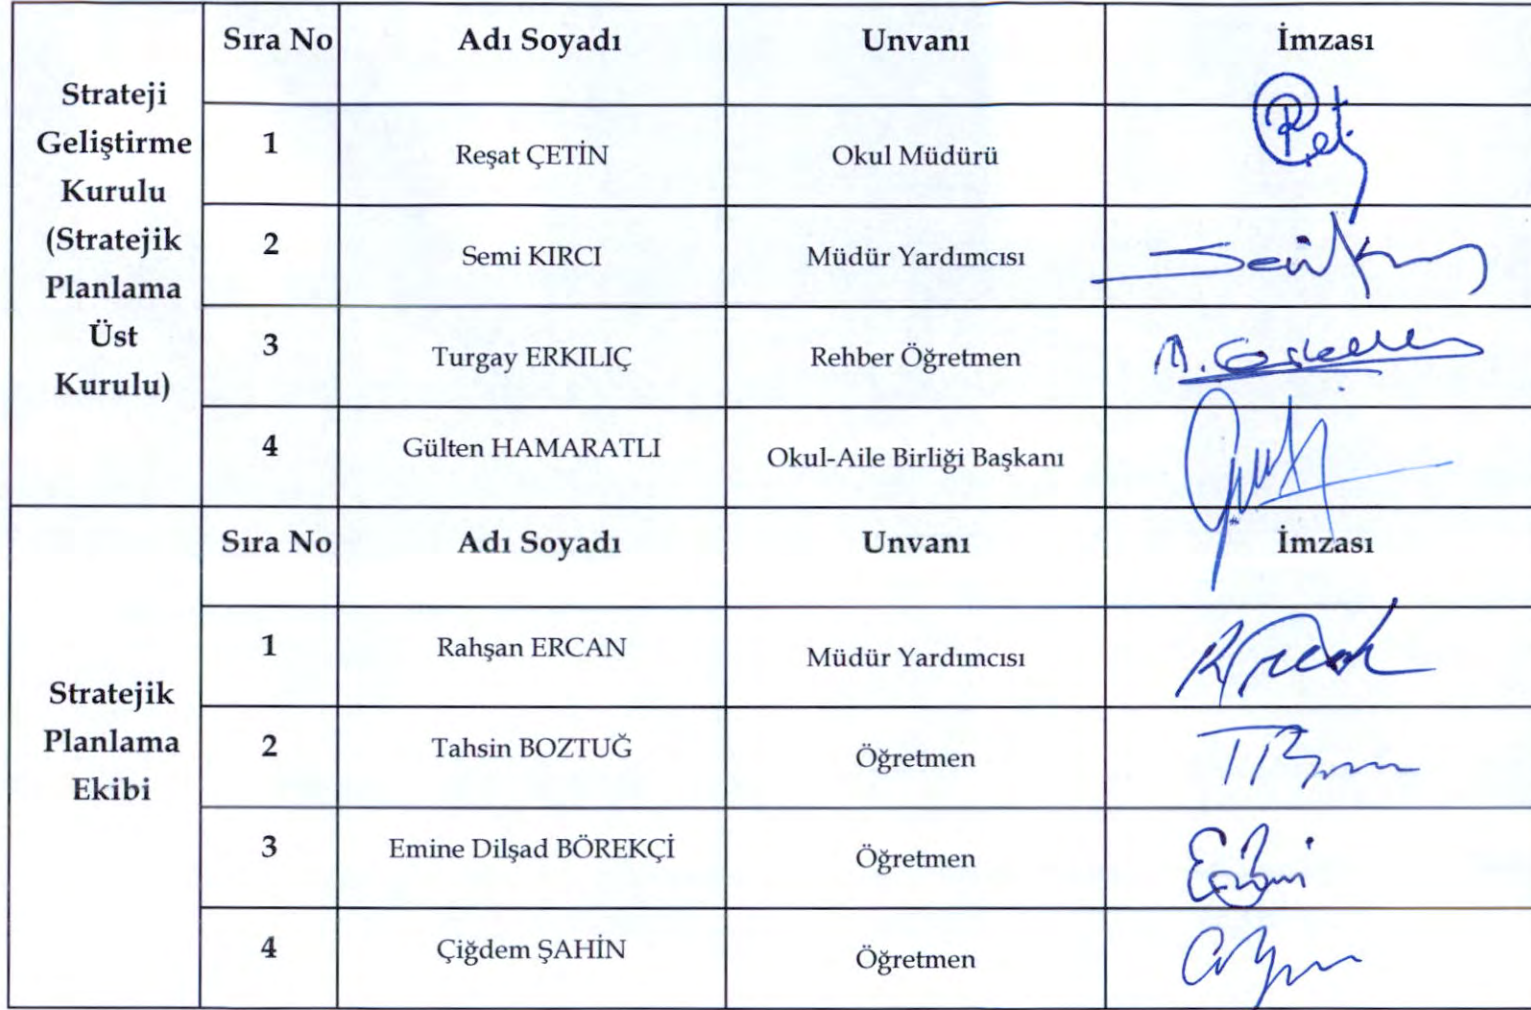 Strateji
Geliştirme
Kurulu
(Stratejik
Planlama
Üst
Kurulu)
Sıra No Adı Soyadı Unvanı İmzası
1 Reşat ÇETİN Okul Müdürü
2 Semi KIRCI Müdür Yardımcısı
3 Turgay ERKILIÇ Rehber Öğretmen
4 Gülten HAMARATLI Okul-Aile Birliği Başkanı
Stratejik
Planlama
Ekibi
Sıra No Adı Soyadı Unvanı İmzası
1 Rahşan ERCAN Müdür Yardımcısı
2 Tahsin BOZTUĞ Öğretmen
3 Emine Dilşad BÖREKÇİ Öğretmen
4 Çiğdem ŞAHİN Öğretmen